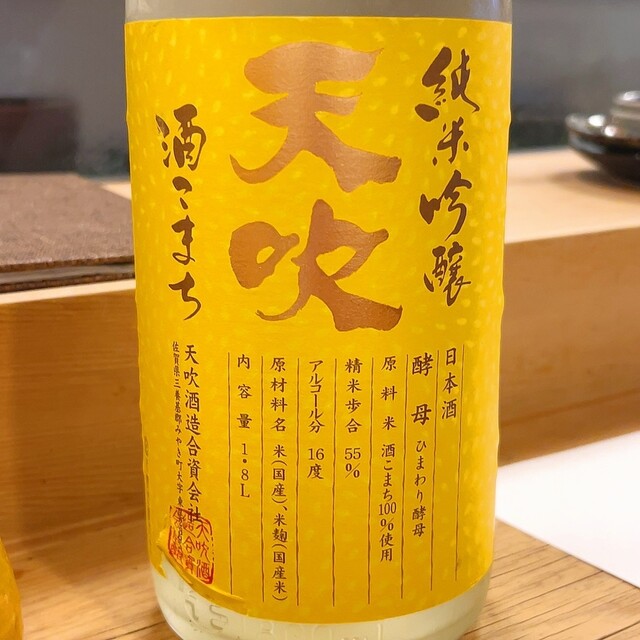 純米吟醸
天吹
酒こまち
日本酒
酵母 ひまわり酵母
原料米 酒こまち100%使用
精米歩合 55%
アルコール分 16度
原材料名 米(国産)、米麹(国産米)
内容量 1.8L
天吹酒造合資会社
佐賀県三養基郡みやき町大字東
天吹酒
造合資